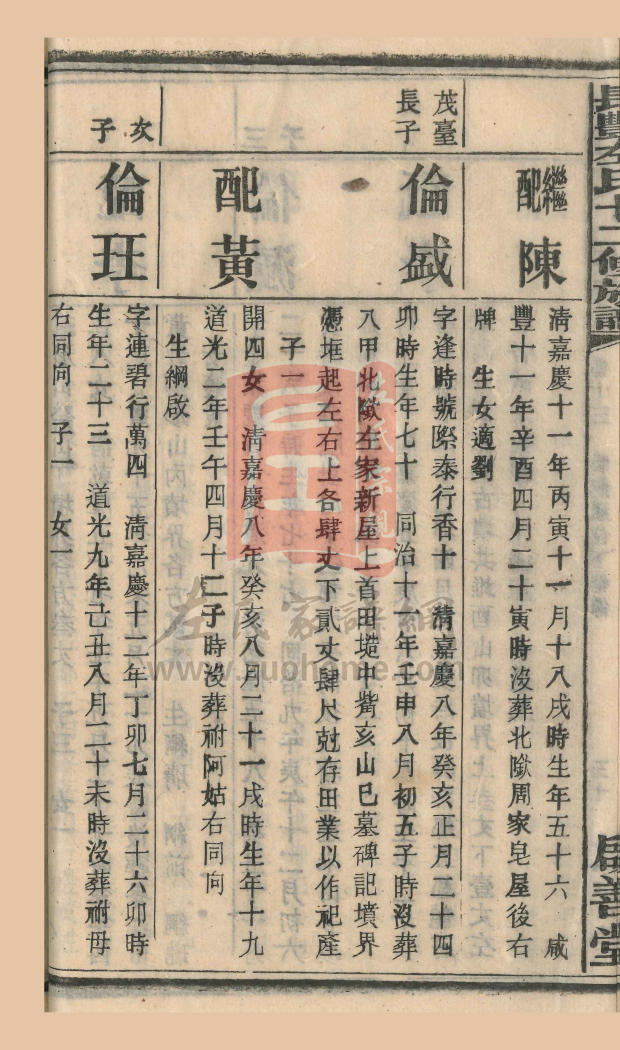 長豐左氏十二修族譜
啟善堂
繼配 陳
清嘉慶十一年丙寅十一月十八戌時生年五十六 咸
豐十一年辛酉四月二十寅時沒葬北歟周家皂屋後右
牌 生女適劉
茂臺
長子
倫盛
字逢時號際泰行香十 清嘉慶八年癸亥正月二十四
卯時生年七十 同治十一年壬申八月初五子時沒葬
八甲北歟左家新屋上首田塝中觜亥山巳墓碑記墳界
憑堆起左右上各肆丈下貳丈肆尺尅存田業以作祀產
子一
配 黃
開四女 清嘉慶八年癸亥八月二十一戌時生年十九
道光二年壬午四月十二子時沒葬祔阿姑右同向
生綱啟
次
子
倫玨
字連碧行萬四 清嘉慶十二年丁卯七月二十六卯時
生年二十三 道光九年己丑八月二十未時沒葬祔母
右同向 子一 女一
左氏家譜網
www.zuohome.com